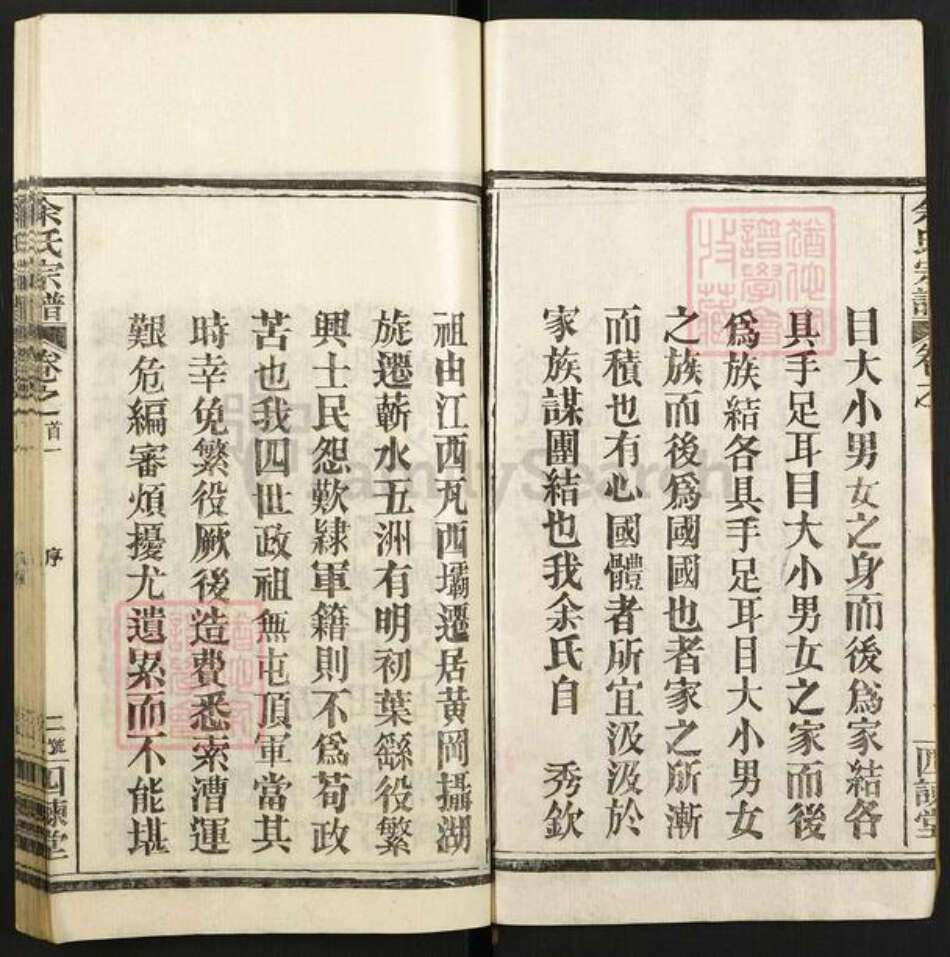 目大小男女之身而後爲家結各
具手足耳目大小男女之家而後
爲族結各具手足耳目大小男女
之族而後爲國國也者家之所漸
而積也有心國體者所宜汲汲於
家族謀團結也我余氏自 秀欽
祖由江西瓦西壩遷居黃岡攝湖
旋遷蘄水五洲有明初葉繇役繁
興士民怨歎隸軍籍則不爲苟政
苦也我四世政祖無屯頂軍當其
時幸免繁役厥後造費悉索漕運
艱危編審煩擾尤遺累而不能堪
余氏宗譜 卷之首一 序 二號 四諫堂
FamilySearch